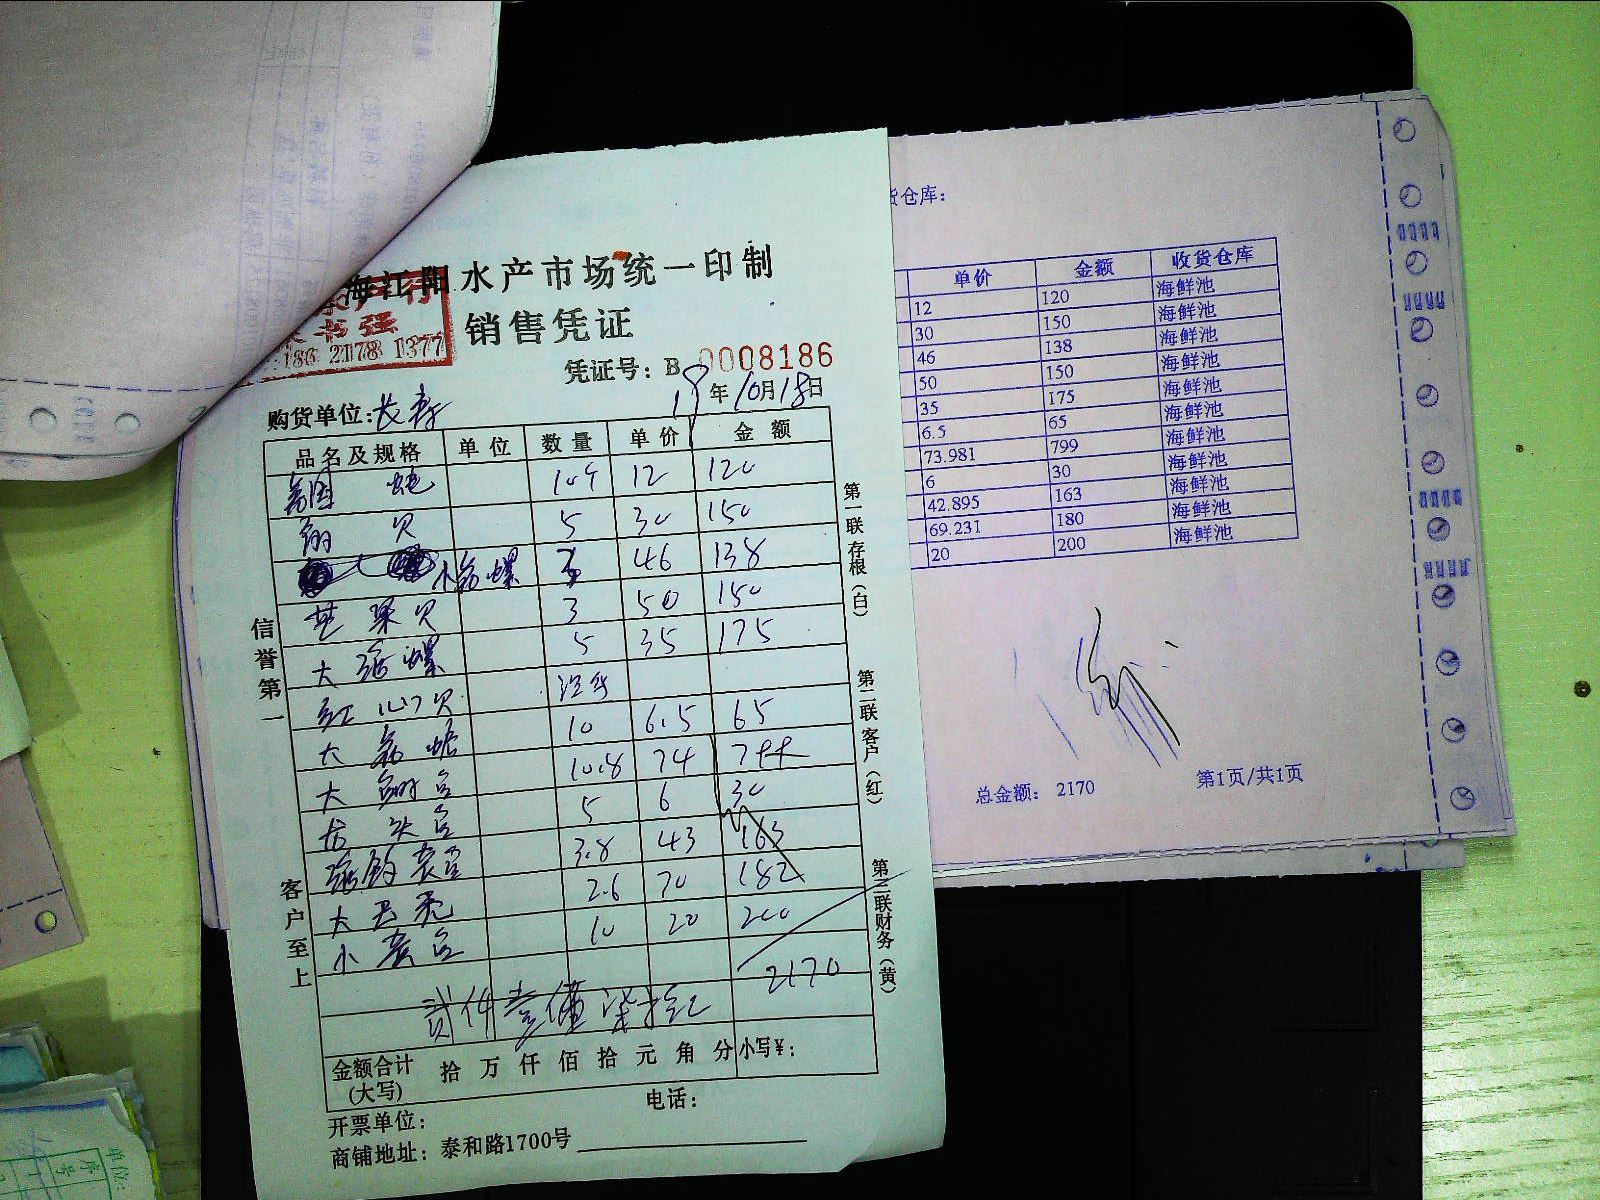 海江阳水产市场统一印制
销售凭证
书强
186 2178 1377
凭证号：B 0008186
18年10月18日
购货单位:长寿
品名及规格 单位 数量 单价 金额
美国 蚝 10斤 12 120
贝 5 30 150
小 螺 3 46 138
贝 3 50 150
大 螺 5 35 175
红 贝
大 蛤 10 6.5 65
大 10.8 74 799
龙头 5 6 30
3.8 43 163
大 2.6 70 182
小 10 20 200
贰仟壹佰柒拾元 2170
金额合计 拾万仟佰拾元角分 小写¥：
(大写)
开票单位： 电话：
商铺地址：泰和路1700号
信誉第一
客户至上
第一联存根(白)
第二联客户(红)
第三联财务(黄)
货仓库：
单价 金额 收货仓库
12 120 海鲜池
30 150 海鲜池
46 138 海鲜池
50 150 海鲜池
35 175 海鲜池
6.5 65 海鲜池
73.981 799 海鲜池
6 30 海鲜池
42.895 163 海鲜池
69.231 180 海鲜池
20 200 海鲜池
总金额： 2170 第1页/共1页
单位:
序号